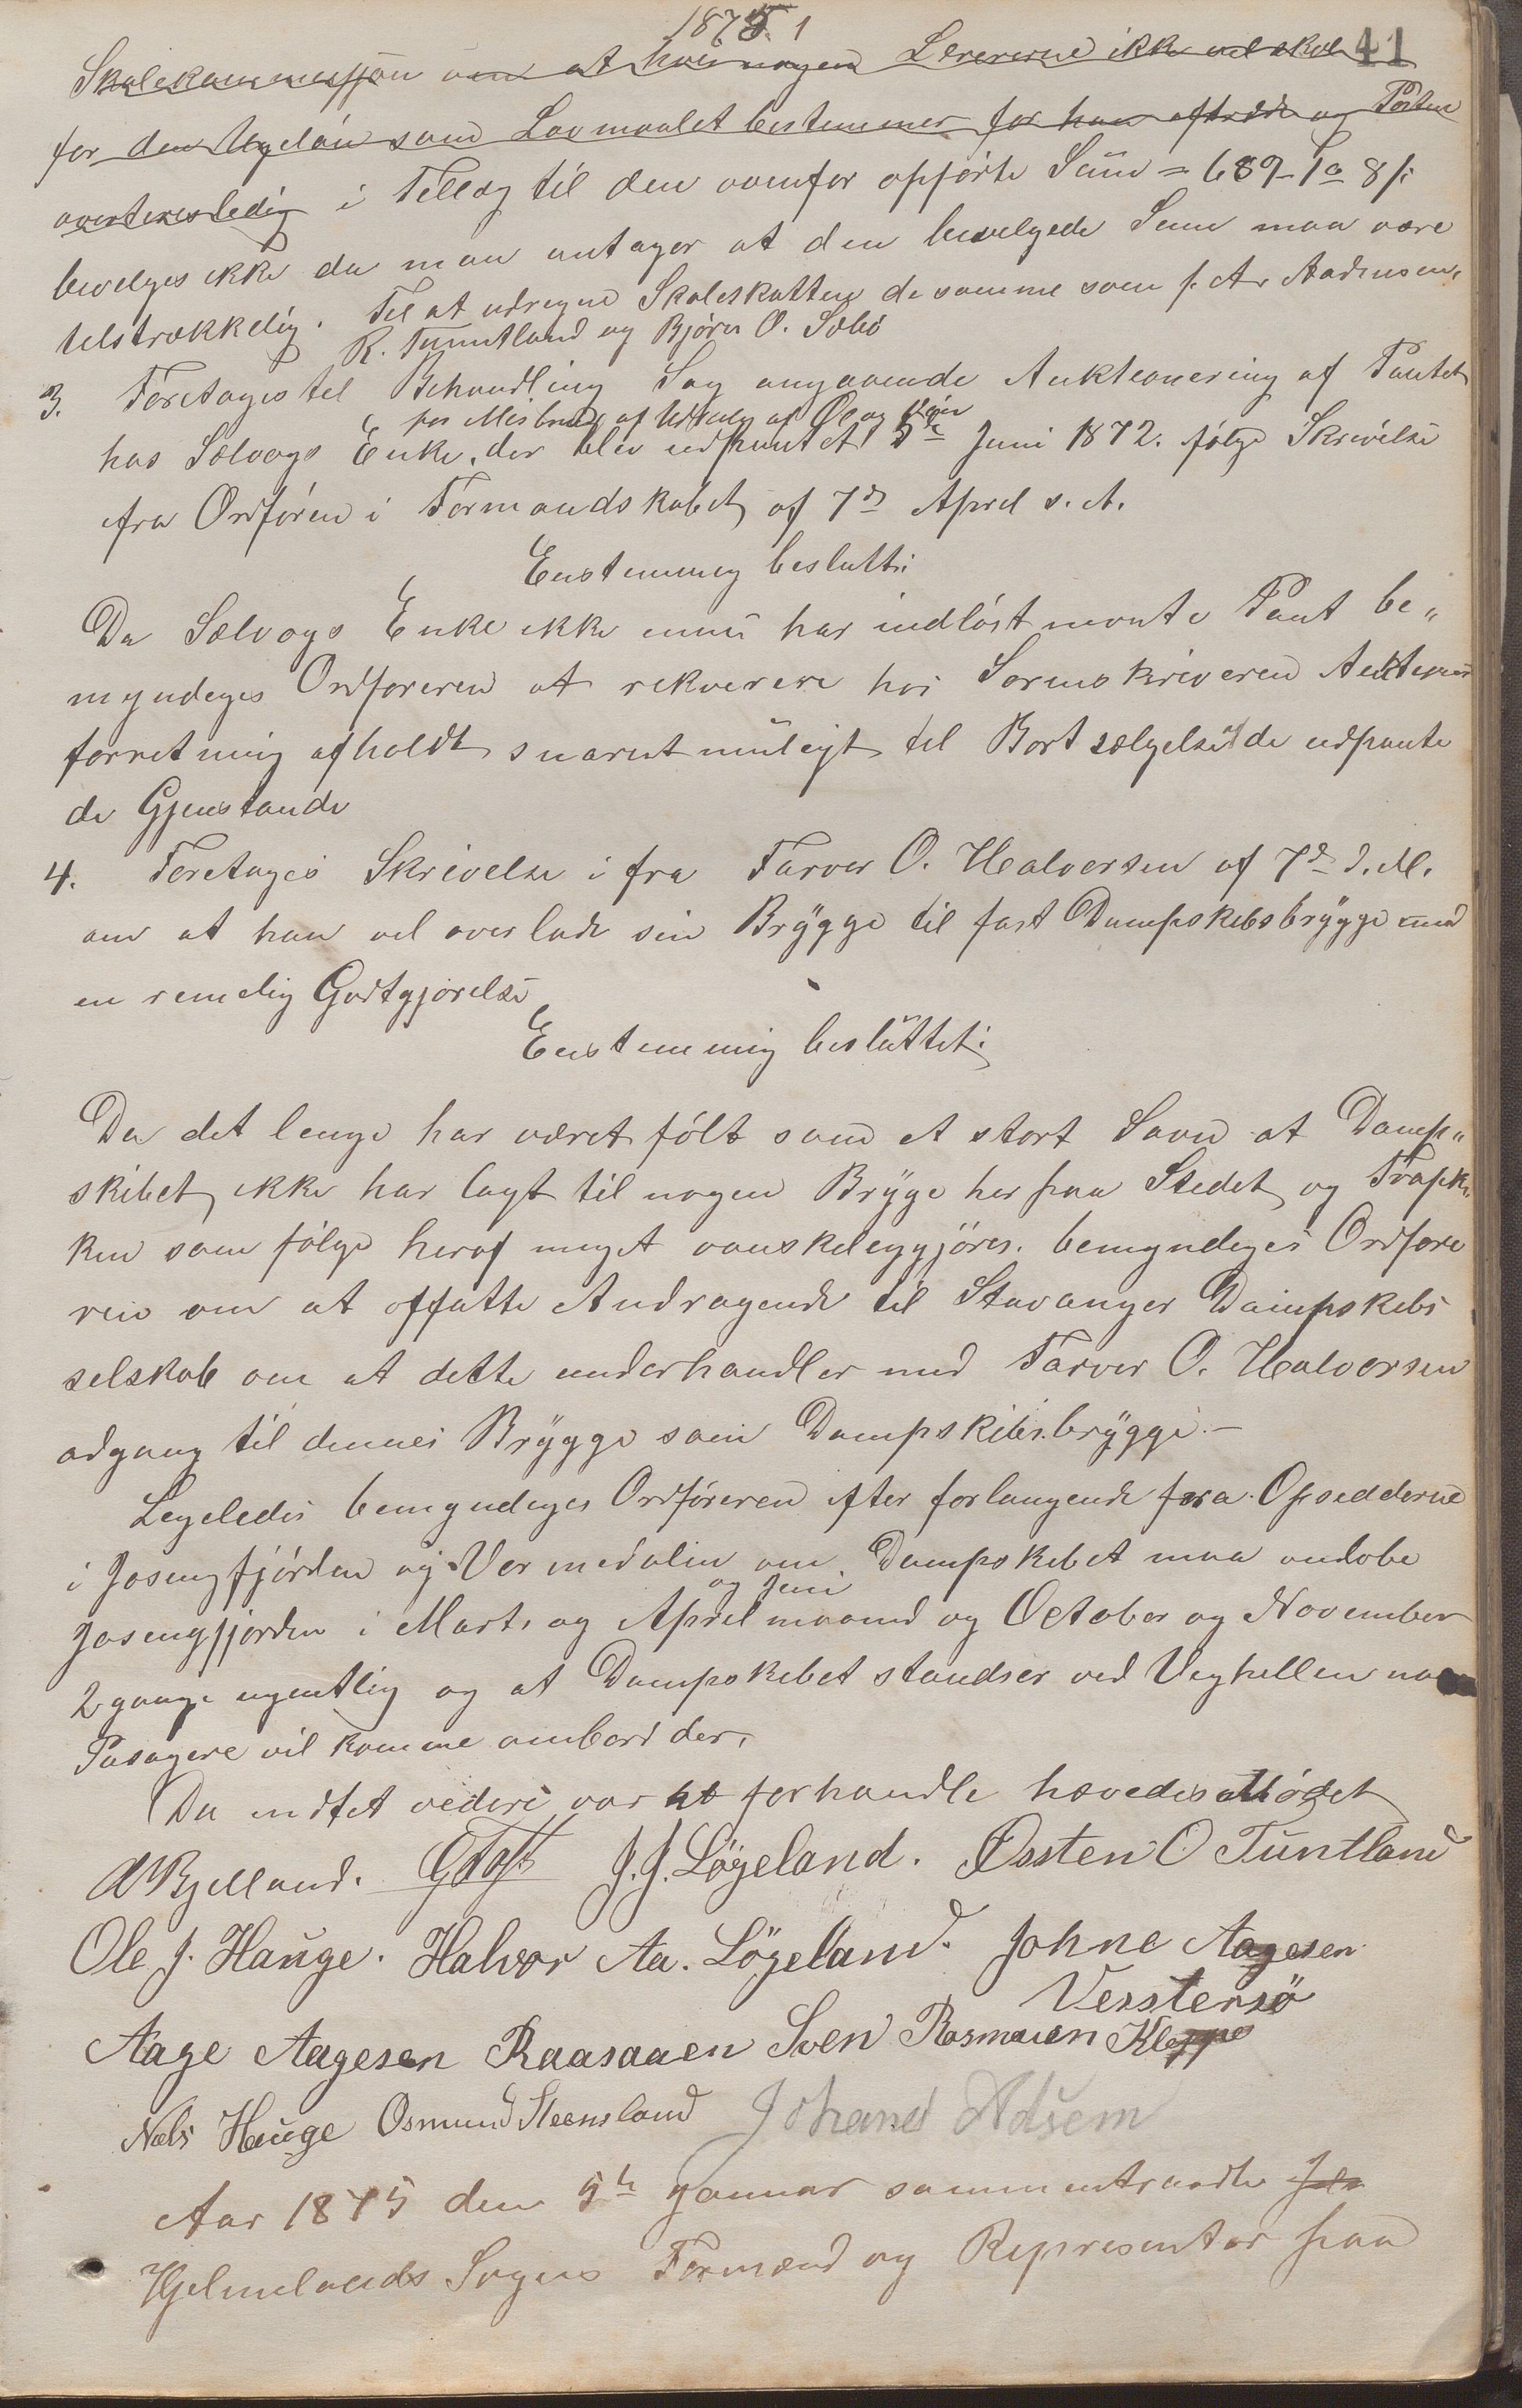 1875. 1
41
Skolekommissjon om at hvis nogen Lærerne ikke vil skole
for den Ugeløn som Lovmaalet bestemmer for han aftræde og Posten
averteres ledig i Tillæg til den ovenfor opførte Sum = 689 - 1 8 s:
bevilges ikke da man antager at den bevilgede Sum maa være
tilstrækkelig. Til at udregne Skoleskatten de samme som f. A.
R. Tuntland og Bjørn O. Sæbø
3. Foretages til Behandling Sag angaaende Auktionering af Pantet
for Misbrug af Udsalg af Øl og Viin
hos Sælvogs Enke, der blev udpantet 5te Juni 1872. følge Skrivelse
fra Ordføren i Formandskabet af 7de April s. A.
Enstemmig beslutt:
Da Sælvogs Enke ikke ennu har indløst Pant be"
myndiges Ordføreren at rekverere hos Sorenskriveren Auktions
forretning afholdt snarest muligt til Bortsælgelse af de udpante
de Gjenstande
4. Foretages Skrivelse i fra Farver O. Halvorsen af 7de d. M.
om at han vil overlade sin Brygge til fast Dampskibsbrygge mod
en rimelig Godtgjørelse
Enstemmig besluttet:
Da det lenge har været følt som et stort Savn at Damp"
skibet ikke har lagt til nogen Bryge her paa Stedet og Trafik
ken som følge heraf meget vanskeliggjöres. bemyndiges Ordføre
ren om at affatte Andragende til Stavanger Dampskibs
selskab om at dette underhandler med Farver O. Halvorsen
adgang til dennes Brygge som Dampskibs.brygge. -
Legeledes bemyndiges Ordføreren efter forlangende fra Opsidderne
i Jøsengfjorden og Vormedalen om Dampskibet maa anløbe
og Juni
Jøsengfjorden i Marts og April maaned og October og November
2 gange ugentlig og at Dampskibet standser ved Veghellen naar
Pasagere vil komme ombord der.
Da indtet videre var at forhandle hævedes Mødet
A Bjelland. G Toft J. J. Løgeland. Østen O Tuntland
Ole J. Hauge. Halvor Aa. Lögeland. Johne Aagesen
Vesstersö
Aage Aagesen Raasaaen Sven Rasmusen Kleppe
Nels Hauge Osmund Steensland Johanes Adsem
Aar 1875 den 5te Januar sammentraadte
Hjelmelands Sogns Formænd og Representer paa